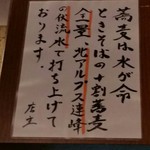 蕎麦は水が命
ときそばの十割蕎麦
全量、北アルプス連峰
の伏流水で打ち上げて
おります。
店主